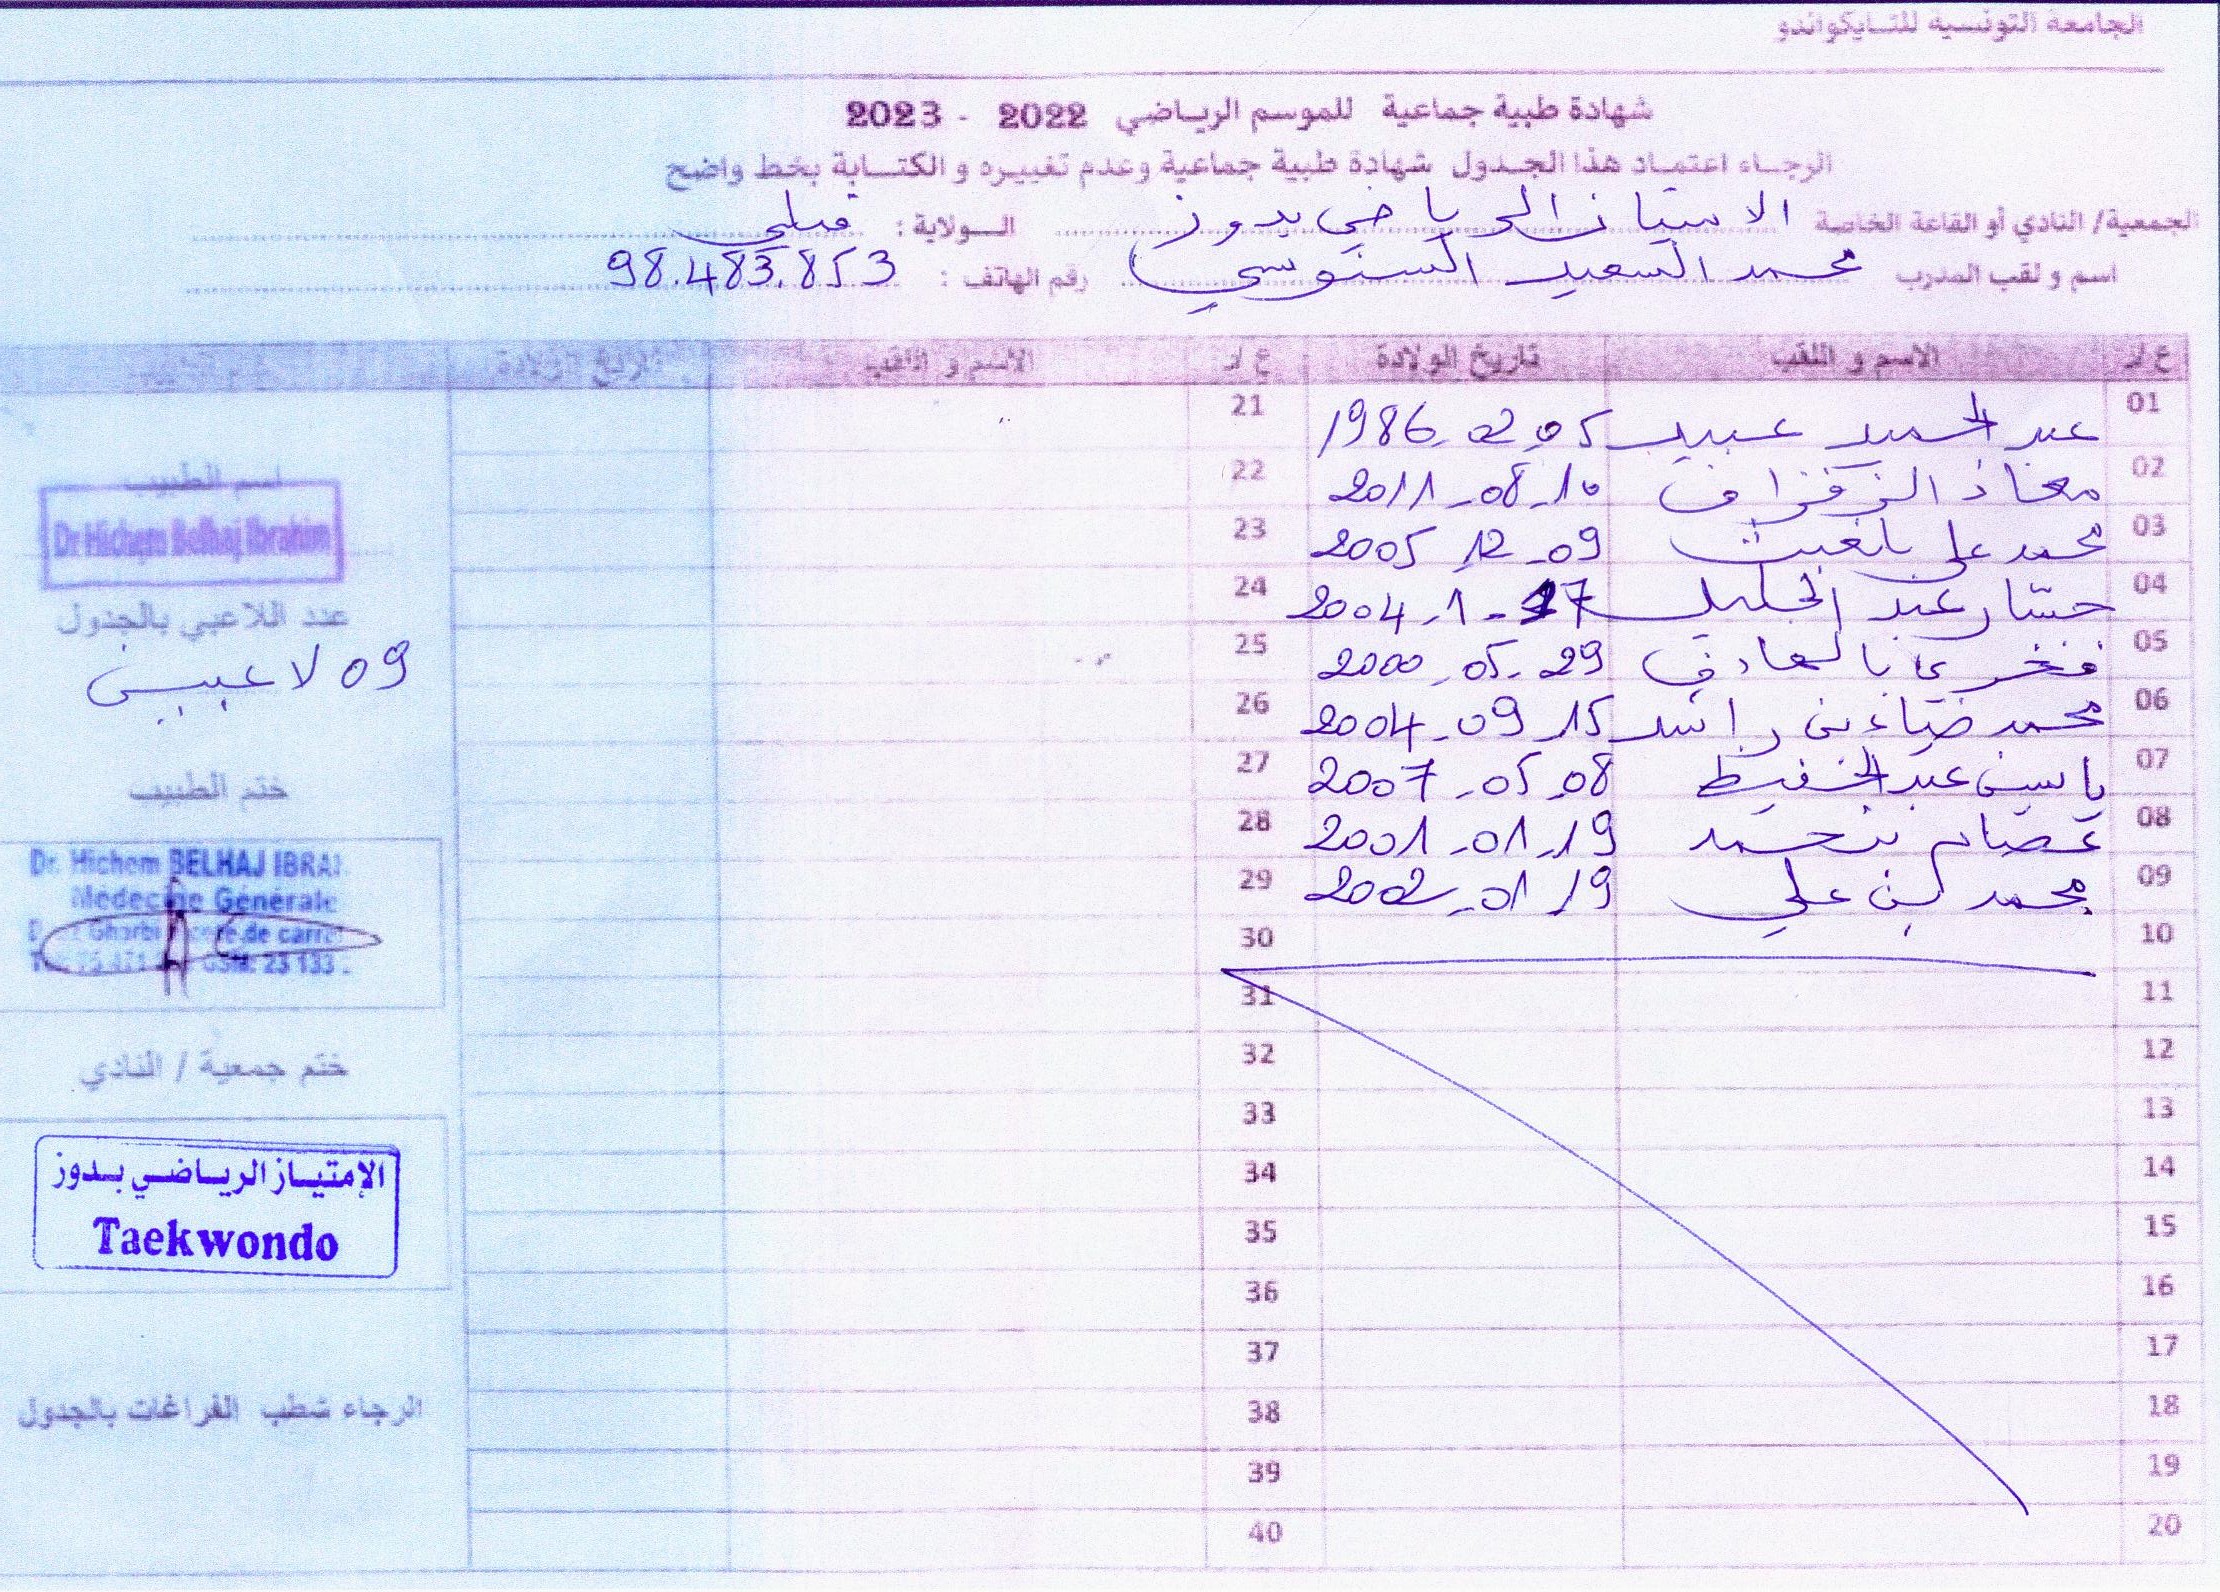 الجامعة التونسية للتايكواندو
شهادة طبية جماعية للموسم الرياضي 2022 - 2023
الرجاء اعتماد هذا الجدول شهادة طبية جماعية وعدم تغييره و الكتابة بخط واضح
الجمعية/ النادي أو القاعة الخاصة الامتياز الرياضي بدوز الولاية : قبلي
اسم و لقب المدرب محمد السعيد السنوسي رقم الهاتف : 98.483.853
ع/ر الاسم و اللقب تاريخ الولادة ع/ر الاسم و اللقب تاريخ الولادة
01 عبد الحميد عبيد 1986.02.05 21
02 معاذ الزقراف 2011-08-10 22
03 محمد علي بلغيث 2005-12-09 23
04 عبد الجليل 2004-1-17 24
05 فخري بالعارف 2000-05-29 25
06 محمد ضياء بن راشد 2004-09-15 26
07 ياسين عبد الحفيظ 2007-05-08 27
08 عصام بنحمد 2001-01-19 28
09 محمد بن علي 2002-01-19 29
10 30
11 31
12 32
13 33
14 34
15 35
16 36
17 37
18 38
19 39
20 40
اسم الطبيب
Dr Hichem Belhaj Ibrahim
عدد اللاعبي بالجدول
09 لاعبين
ختم الطبيب
Dr. Hichem BELHAJ IBRA
Médecine Générale
ختم جمعية / النادي
الإمتياز الرياضي بدوز
Taekwondo
الرجاء شطب الفراغات بالجدول